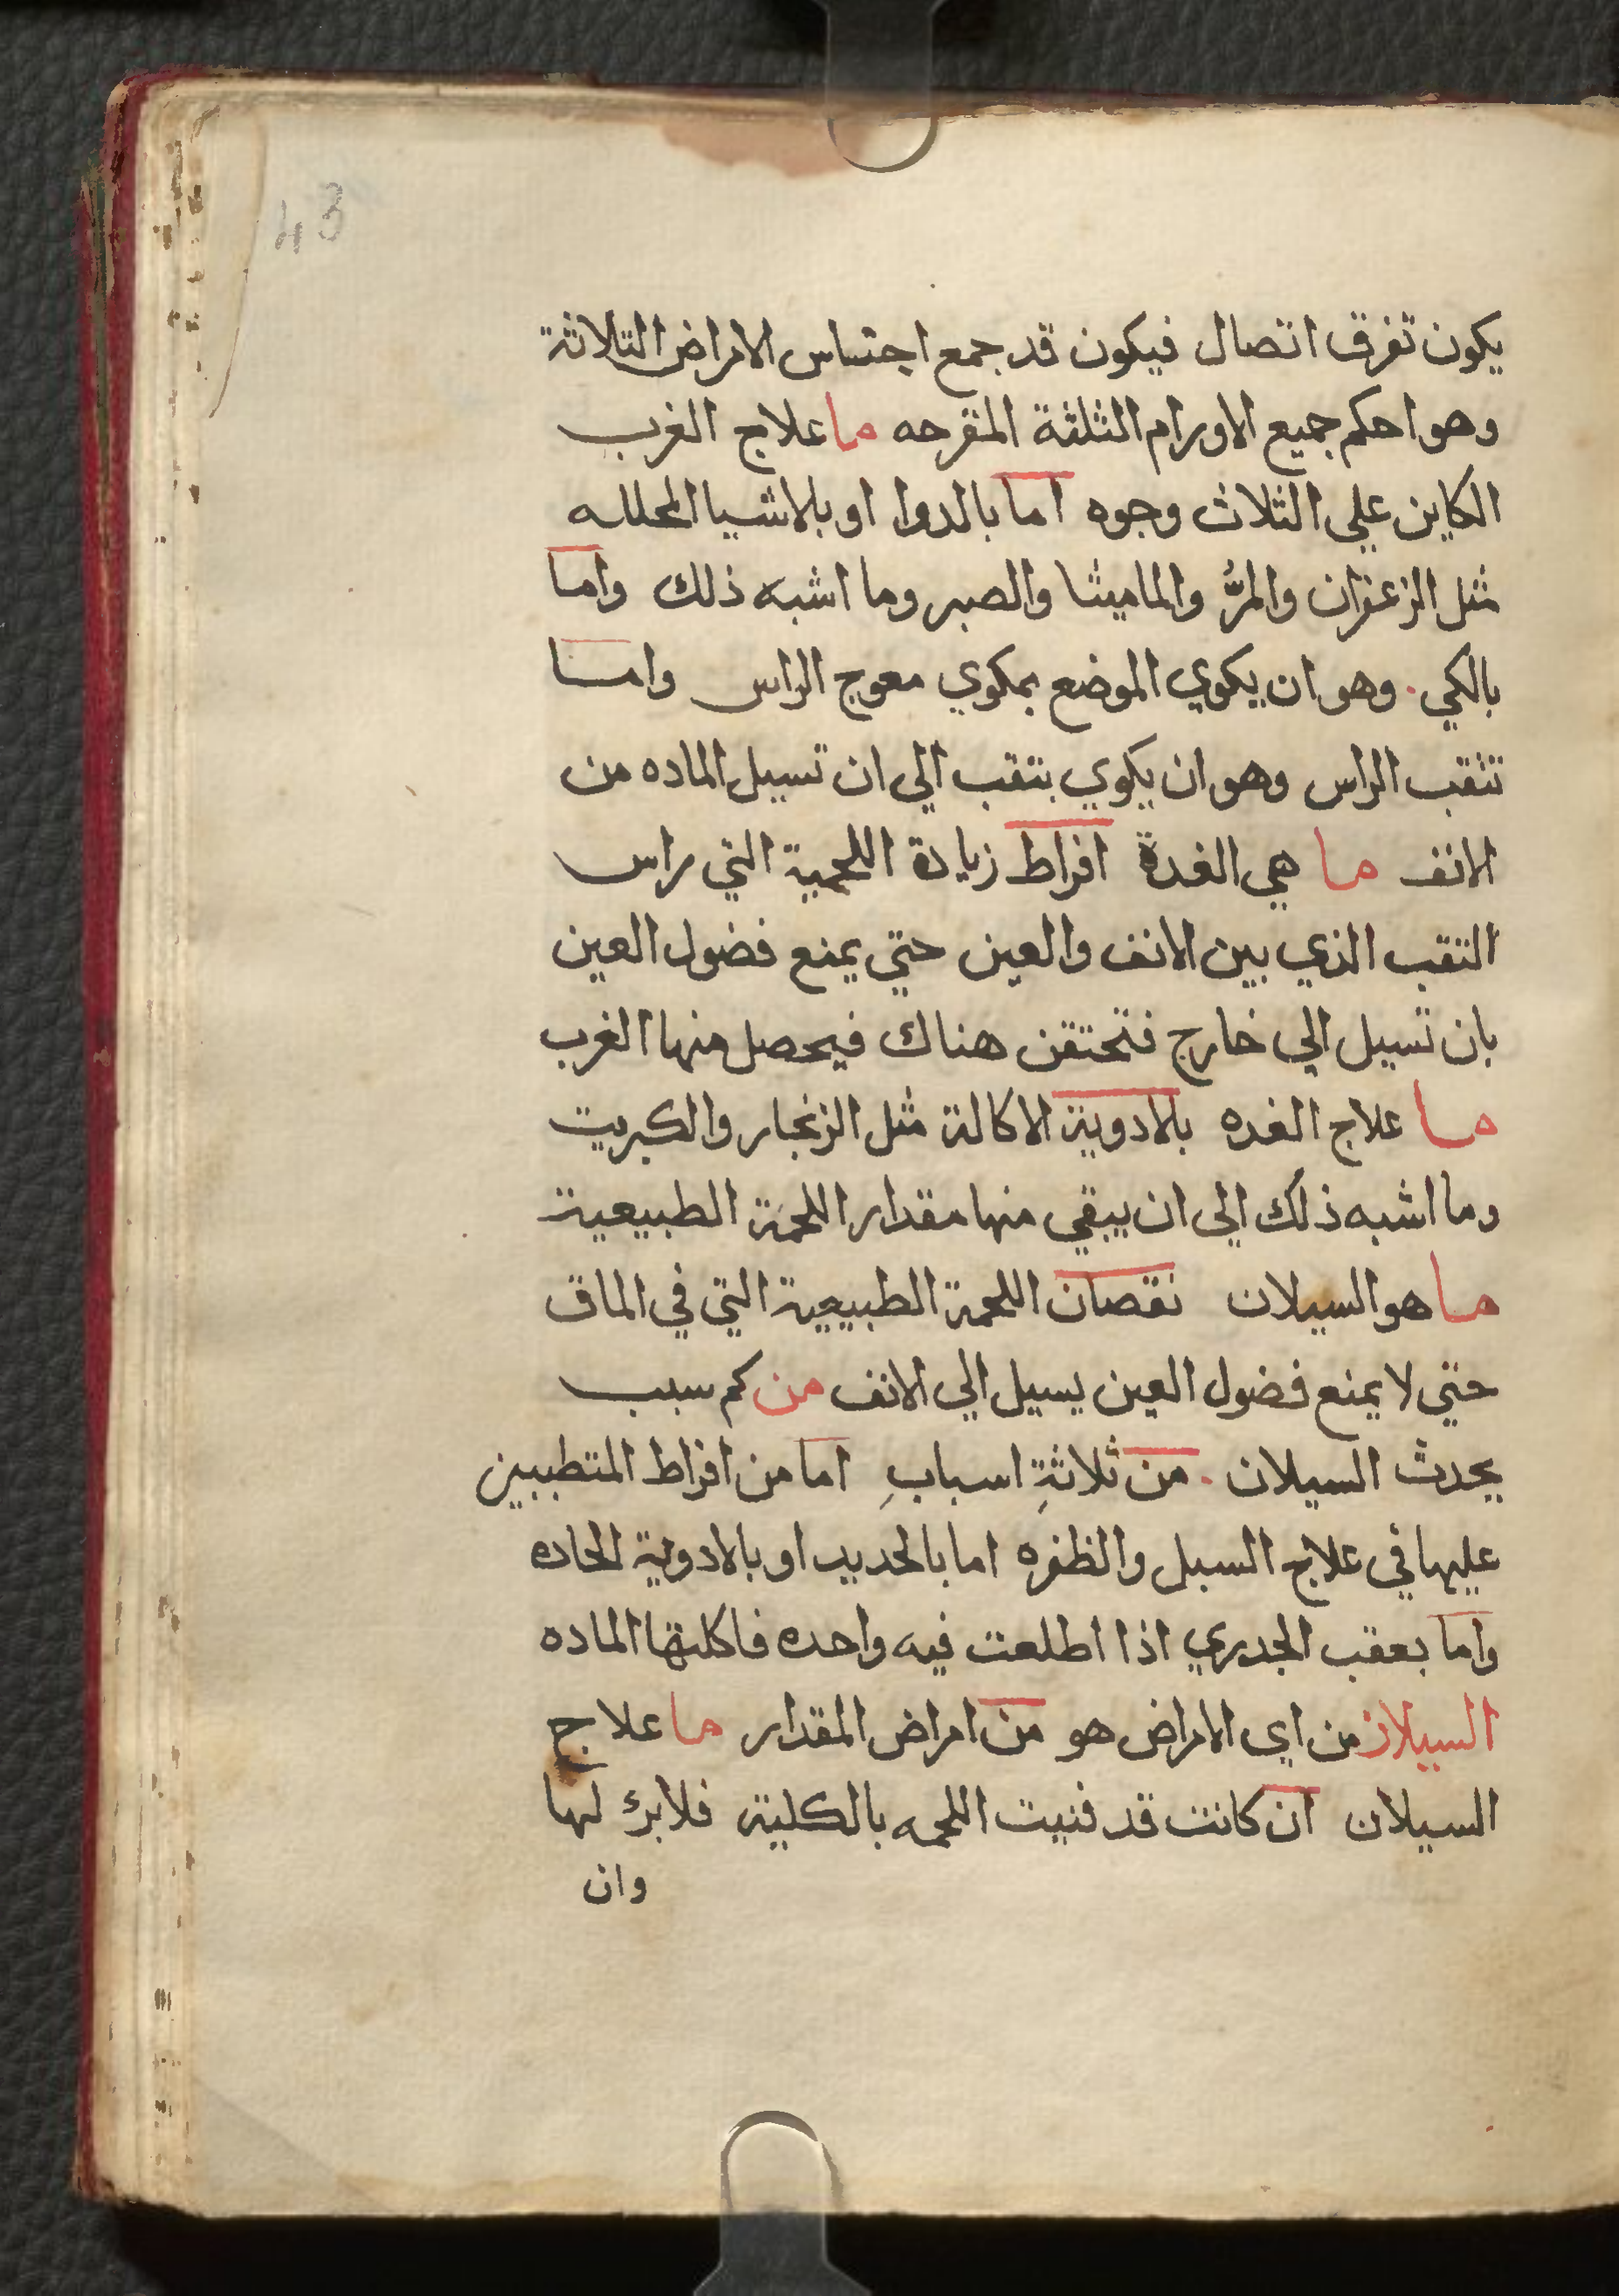 43
يكون تفرق اتصال فيكون قد جمع اجتناس الامراض التلاثة
وهو احكم جميع الاورام الثلثة المقرحه ما علاج الغرب
الكاين علي الثلاث وجوه اما بالدوا او بلاشيا المحللـه
مثل الزعفران والمرُّ والماميثا والصبر وما اشبه ذلك واما
بالكي . وهو ان يكوي الموضع بمكوي معوج الراس وامـا
تثقب الراس وهو ان يكوي بتقب الي ان تسيل الماده من
الانف ما هي الغدة افراط زيادة اللحمية التي راس
التقب الذي بين الانف والعين حتي يمنع فضول العين
بان تسيل الي خارج فتحتقن هناك فيحصل منها الغرب
ما علاج الغده بلادوية الاكالة مثل الزنجار والكبريت
وما اشبه ذلك الي ان يبقي منها مقدار اللحمة الطبيعية
ما هو السيلان نقصان اللحمة الطبيعية التي في الماق
حتي لا يمنع فضول العين يسيل الي الانف من كم سبب
يحدث السيلان . من ثلاثةِ اسبابِ اما من افراط المتطببين
عليها في علاج السبل والظفره اما بالحديد او بالادوية الحاده
واما بعقب الجدري اذا اطلعت فيه واحده فاكلتها الماده
السيلان من اي الامراض هو من امراض المقدار ما علاج
السيلان ان كانت قد فنيت اللحمه بالكلية فلا برك لها
وان